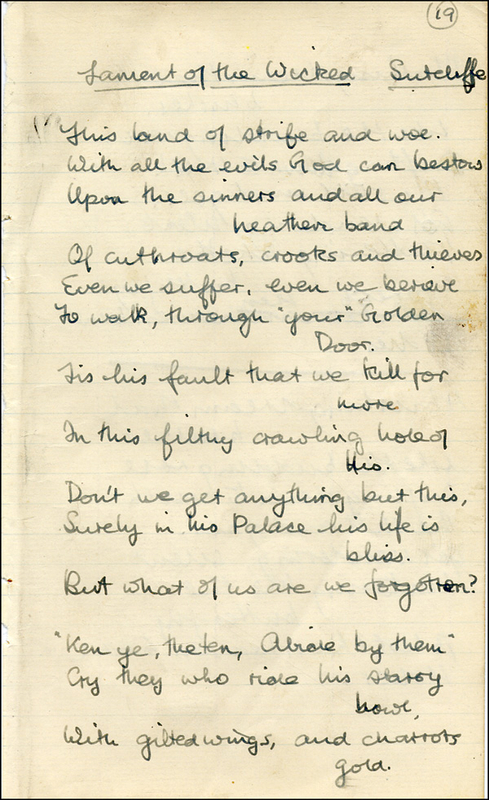 19
Lament of the Wicked Sutcliffe
This land of strife and woe.
With all the evils God can bestow
Upon the sinners and all our
heathen band
Of cuthroats, crooks and thieves
Even we suffer, even we
To walk, through "your" Golden
Door.
Tis his fault that we kill for
more
In this filthy crawling hole of
His.
Don't we get anything but this,
Surely in his Palace his life is
bliss.
But what of us are we forgotten?
"Ken ye, the ten, Abide by them"
Cry they who ride his starry
howl,
With gilted wings, and charrots
gold.